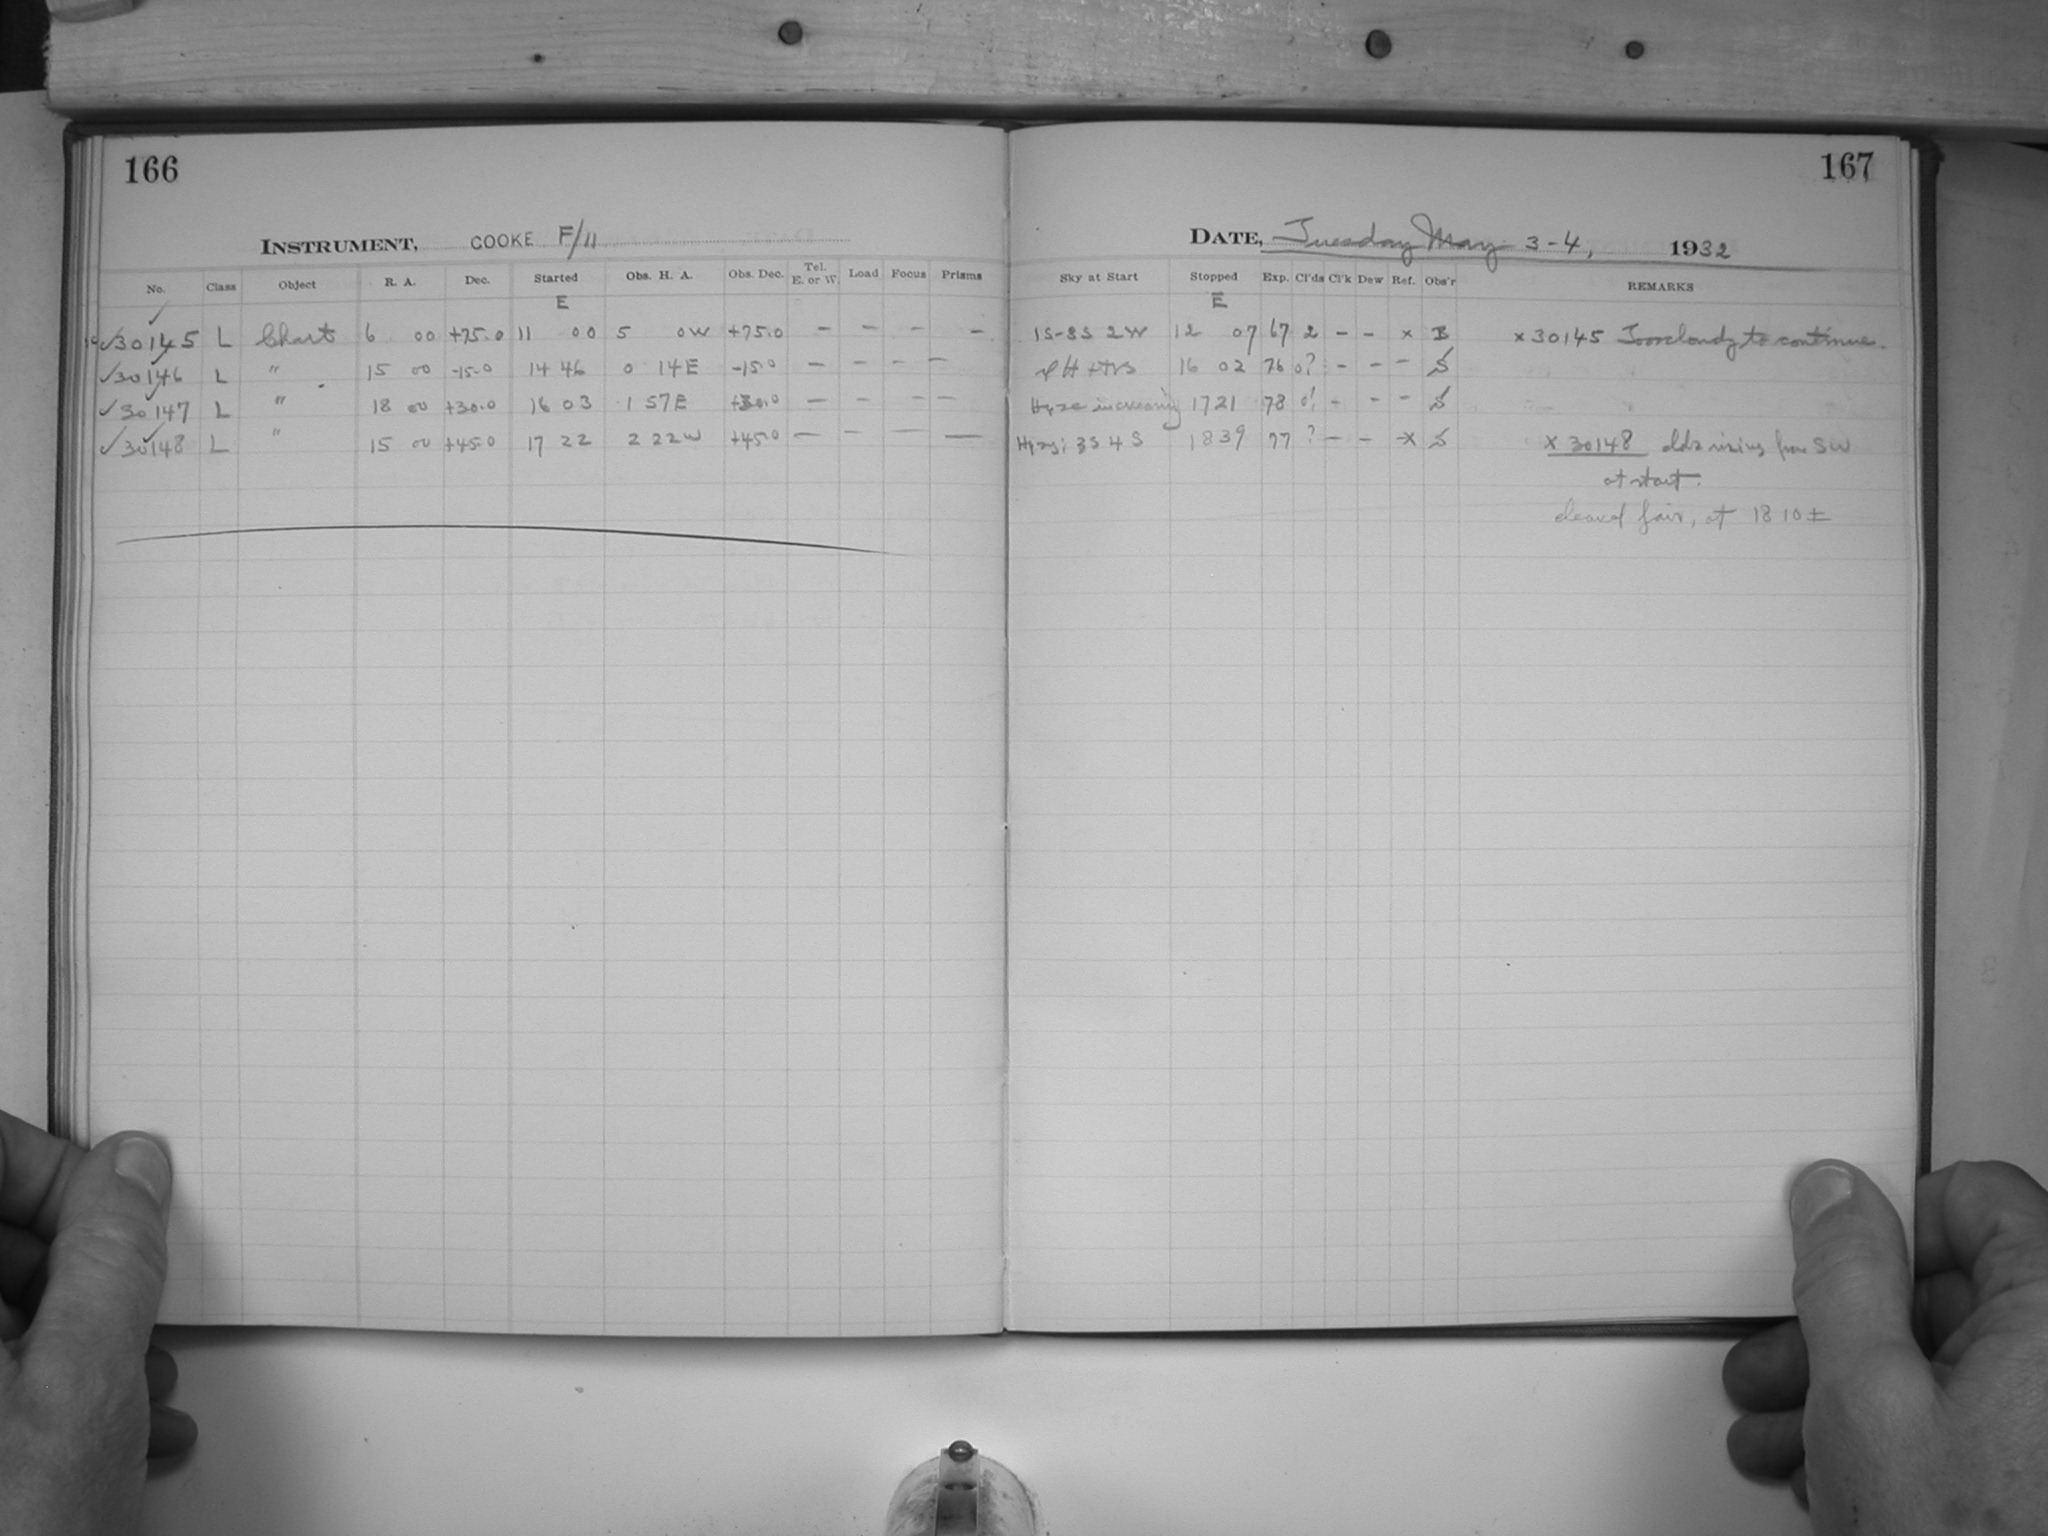 166
INSTRUMENT, COOKE F/11
No. Class Object R. A. Dec. Started Obs. H. A. Obs. Dec. Tel. E. or W. Load Focus Prisms
E
✓30145 L Chart 6 00 +75.0 11 00 5 0W +75.0 — — — —
✓30146 L " 15 00 -15.0 14 46 0 14E -15.0 — — — —
✓30147 L " 18 00 +30.0 16 03 1 57E +30.0 — — — —
✓30148 L " 15 00 +45.0 17 22 2 22W +45.0 — — — —
167
DATE, Tuesday May 3-4, 1932
Sky at Start Stopped Exp. Cl'ds Cl'k Dew Ref. Obs'r REMARKS
E
1S-8S 2W 12 07 67 2 — — x B x30145 Too cloudy to continue.
16 02 76 0? — — — S
Haze increasing 1721 78 — — — S
3S 4S 1839 77 ? — — x S x 30148 clds rising from SW
at start.
cleared fair, at 18 10±